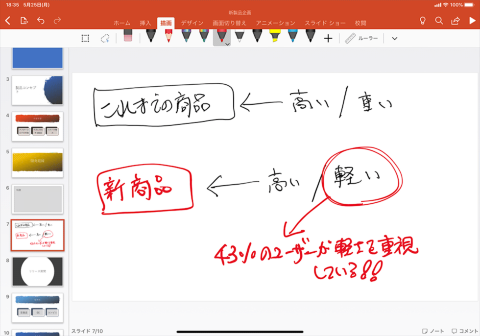 18:35 6月25日(月)
100%
新製品企画
ホーム 挿入 描画 デザイン 画面切り替え アニメーション スライド ショー 校閲
ルーラー
これまでの商品 ← 高い / 重い
新商品 ← 高い / 軽い
43%のユーザーが軽さを重視
している!!
3
4
5
6
7
8
9
10
スライド 7/10
ノート
コメント